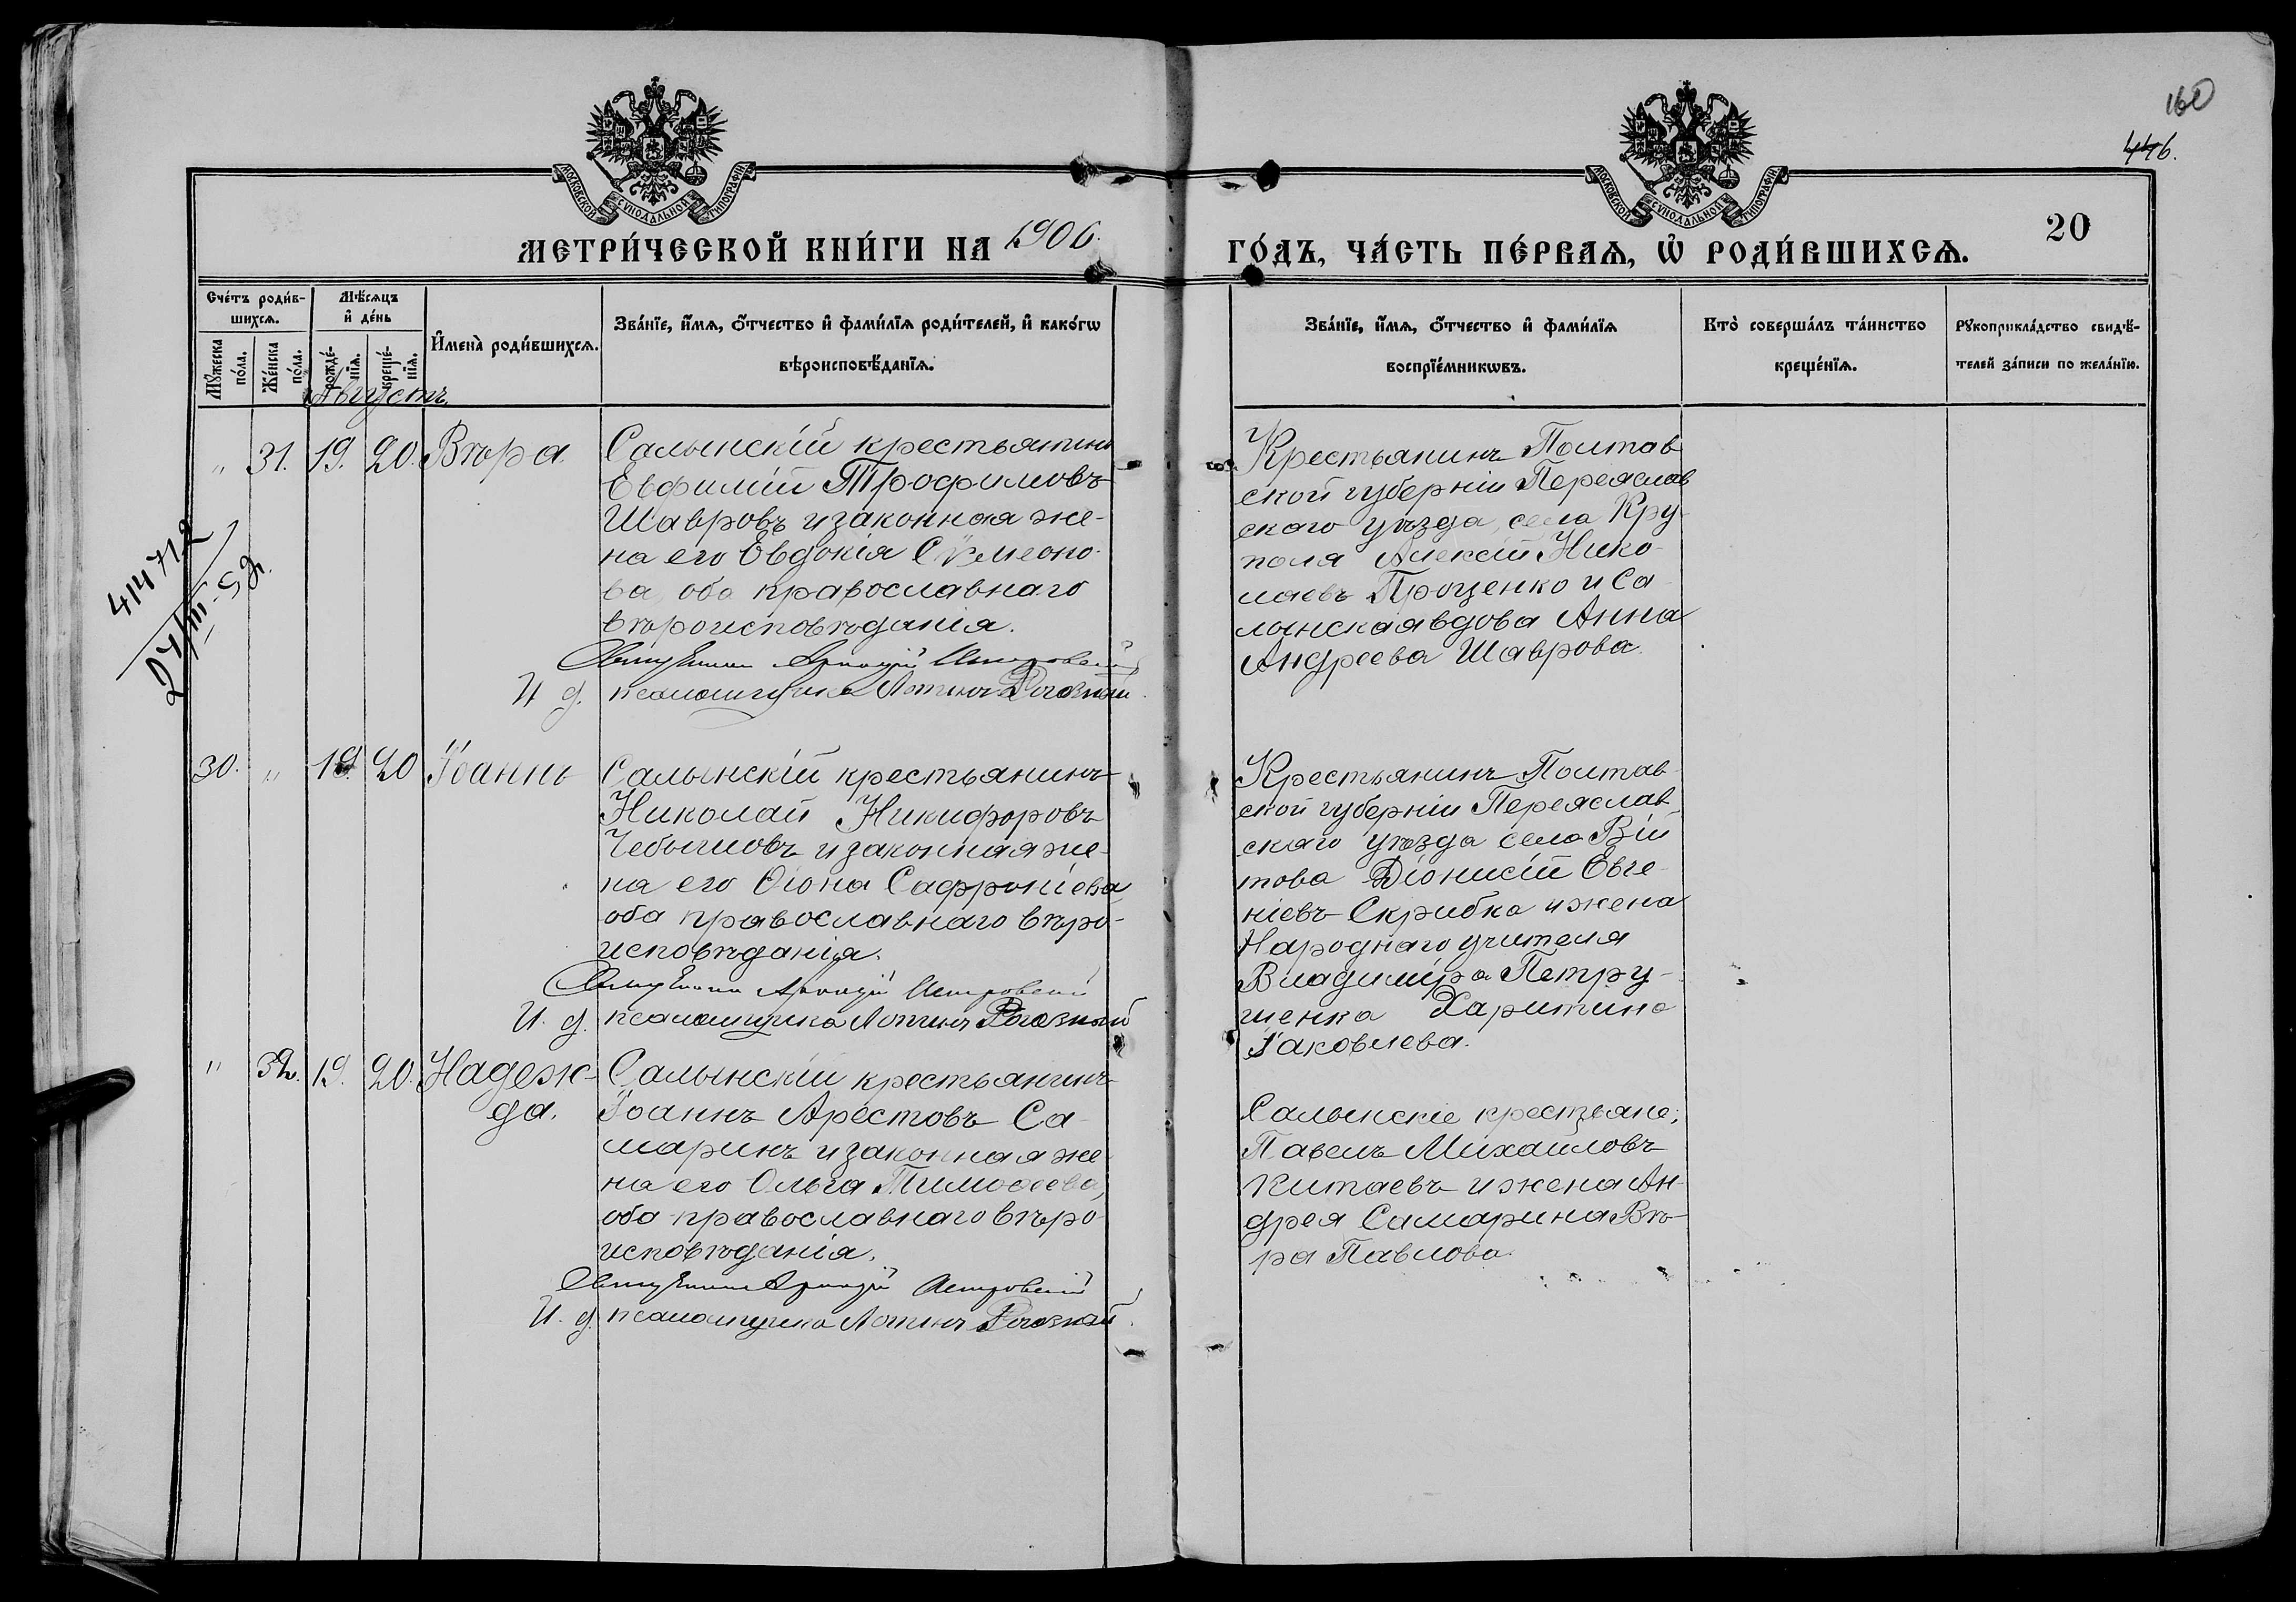 160
446.
МОСКОВСКОЙ СѴНОДАЛЬНОЙ ТИПОГРАФІИ
МОСКОВСКОЙ СѴНОДАЛЬНОЙ ТИПОГРАФІИ
МЕТРИ́ЧЕСКОЙ КНИ́ГИ НА 1906.
ГО́ДЪ, ЧА́СТЬ ПЕ́РВАѦ, Ѡ҆ РОДИ́ВШИХСѦ.
20
Сче́тъ роди́в-
шихсѧ.
Мѣ́сѧцъ
и҆ де́нь
Мꙋ́жеска по́ла.
Же́нска по́ла.
рожде́-нїѧ.
креще́-нїѧ.
И҆мена̀ роди́вшихсѧ.
Зва́нїе, и҆́мѧ, ѻ҆́тчество и҆ фами́лїѧ роди́телей, и҆ како́гѡ
вѣроисповѣ́данїѧ.
Зва́нїе, и҆́мѧ, ѻ҆́тчество и҆ фами́лїѧ
воспрїе́мникѡвъ.
Кто̀ соверша́лъ та́инство
креще́нїѧ.
Рꙋкоприкла́дство свидѣ́-
телей за́писи по жела́нїю.
Августъ.
" 31. 19. 20. Вѣра.
Салынскій крестьянинъ
Евфимій Трофимовъ
Шавровъ и законная же-
на его Евдокія Сѵмеоно-
ва, оба православнаго
вѣроисповѣданія.
Священникъ Аркадій
И. д. псаломщика Логинъ Рогозный.
Крестьянинъ Полтав-
ской губерніи Переяслав
скаго уѣзда, села Кру-
поля Алексій Нико-
лаевъ Проценко и Са-
лынская вдова Анна
Андреева Шаврова.
414712
27/III-52.
30. " 19. 20 Іоаннъ
Салынскій крестьянинъ
Николай Никифоровъ
Чебышовъ и законная же-
на его Ѳіона Сафроніева,
оба православнаго вѣро-
исповѣданія.
Священникъ Аркадій
И. д. псаломщика Логинъ Рогозный
Крестьянинъ Полтав-
ской губерніи Переяслав-
скаго уѣзда села Вій
това Діонисій Евге-
ніевъ Скрибка и жена
Народнаго учителя
Владиміра Петру-
шенка Харитина
Іаковлева.
" 32. 19. 20. Надеж-
да.
Салынскій крестьянинъ
Іоаннъ Арестовъ Са-
маринъ и законная же
на его Ольга Тимоѳеева,
оба православнаго вѣро-
исповѣданія.
Священникъ Аркадій
И. д. псаломщика Логинъ Рогозный.
Салынскіе крестьяне;
Павелъ Михаиловъ
Китаевъ и жена Ан-
дрея Самарина Вѣ-
ра Павлова.